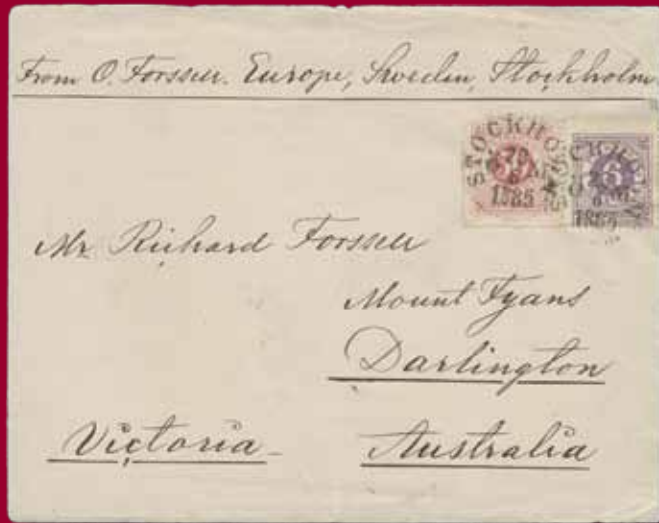 From O. Forssell. Europe, Sweden, Stockholm.
STOCKHOLM
1885
6
1885
Mr Richard Forssell
Mount Fyans
Darlington
Victoria Australia